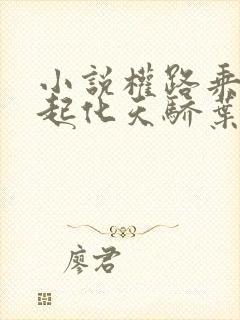 小說權路乘
起化天驕葉
廖君